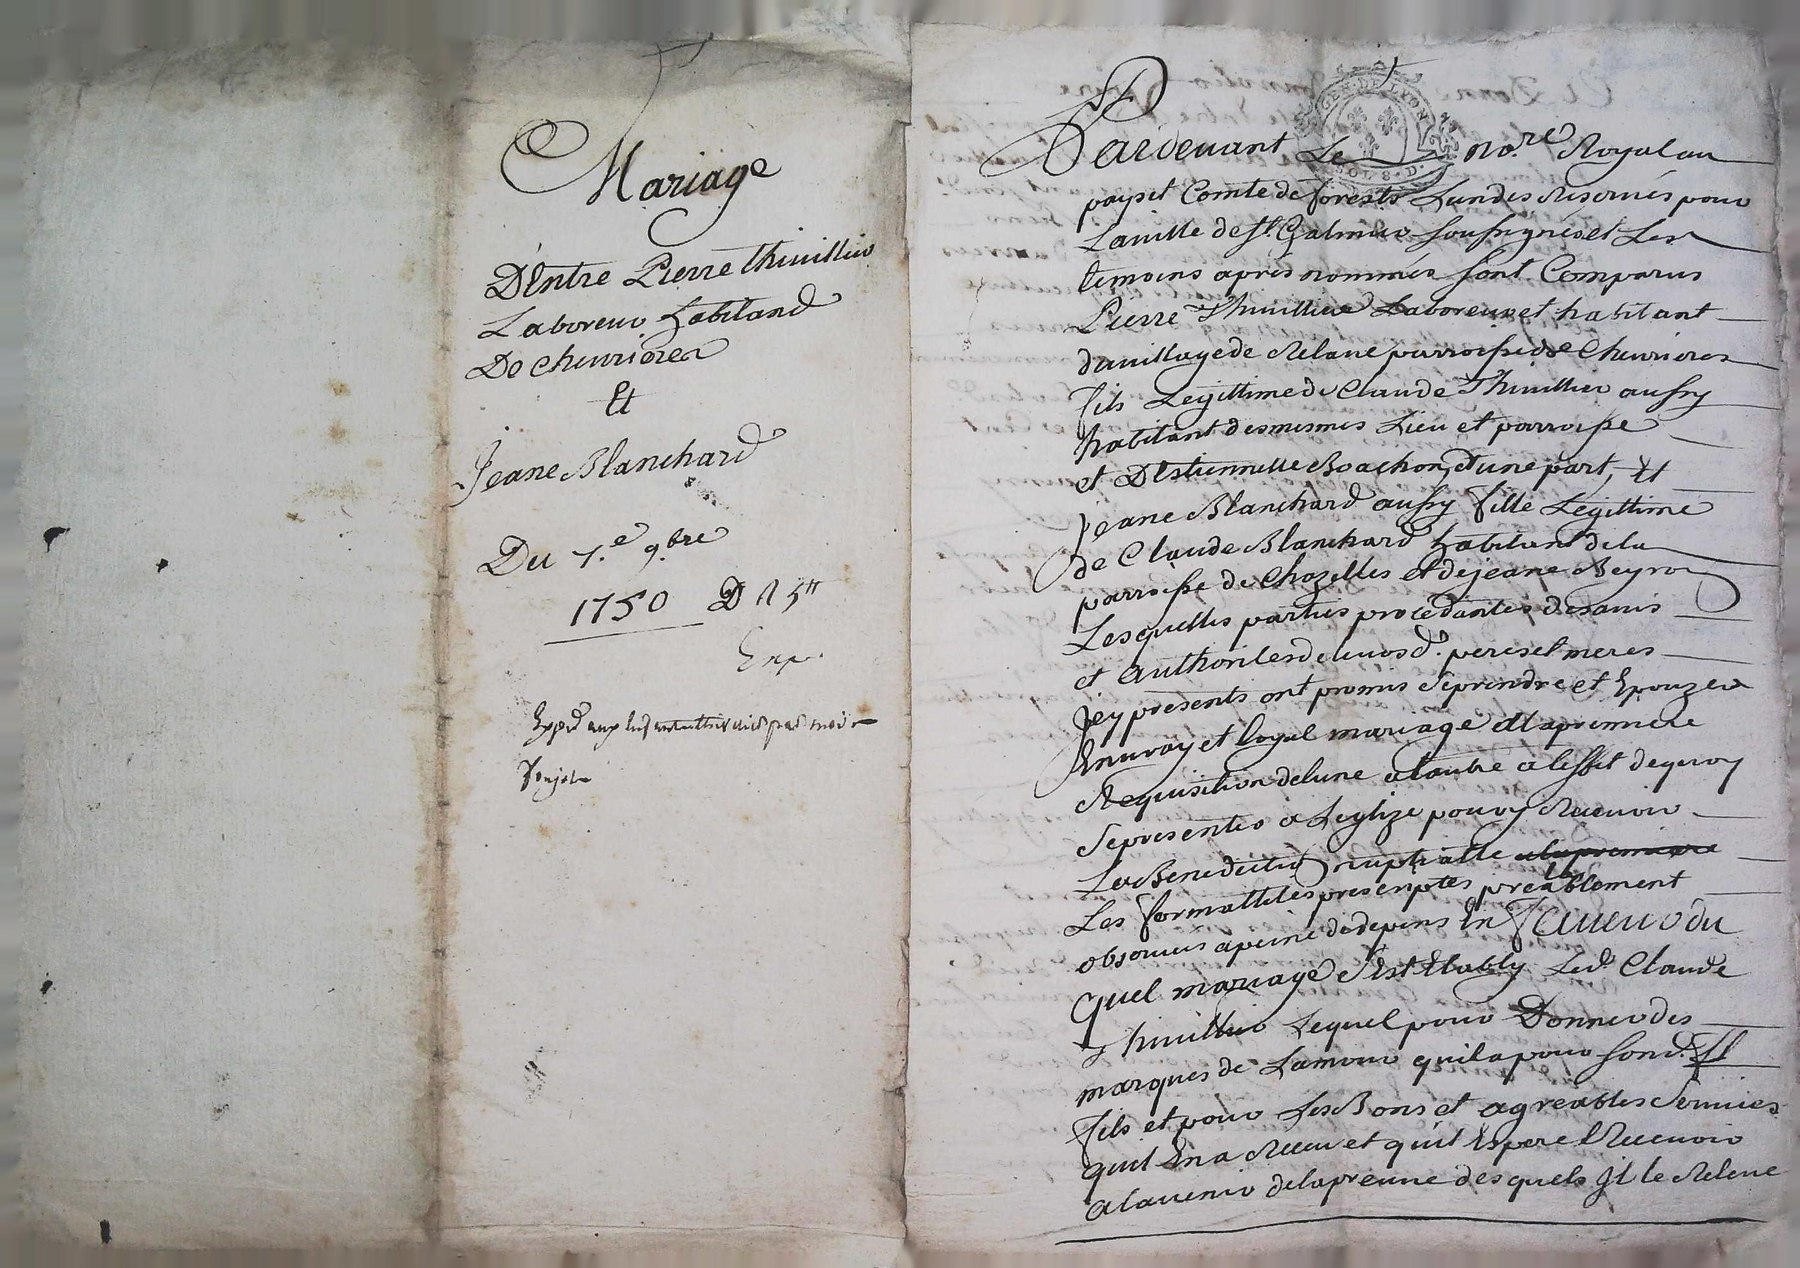 Mariage
D'Entre Pierre thiuillier
Laboreur habitand
De cheurieres
Et
Jeane Blanchard
Du 7.e 9.bre
1750 D R 5tt
Exp.
GEN. DE LYON
SOLS. D.
Pardeuant Le no.re Royal au
pays et Comté de forests Lun des Reservés pour
La uille de St. Galmier soussignés et Les
temoins apres nommés sont Comparus
Pierre Thiuillier Laboreur et habitant
du uillage de Relaue parroisse de Cheurieres
fils Legittime de Claude Thiuillier aussy
habitant desmesmes Lieu et parroisse
et D'Estiennette Boachon, d'une part, Et
Jeane Blanchard aussy fille Legittime
de Claude Blanchard habitant de la
parroisse de Chazelles et de jeane Neyro
Lesquelles parties procedantes des auis
et authorites de leurs d. peres et meres
Jcy presents ont promis se prendre et Epouzer
En uray et loyal mariage et la premiere
Requisition de lune a lautre a leffet de quoy
se presenter a Leglize pour y Receuoir
La Benediction nuptialle a la premiere
Les formallités prescriptes prealablement
obserués a peine de depens En faueur du
quel mariage s'est Etably Led. Claude
Thiuillier Lequel pour Donner des
marques de Lamour quil a pour son d.
fils et pour Les Bons et agreables seruices
quil En a Receu et quil Espere Receuoir
a lauenir de la preuue desquels Jl le Releue